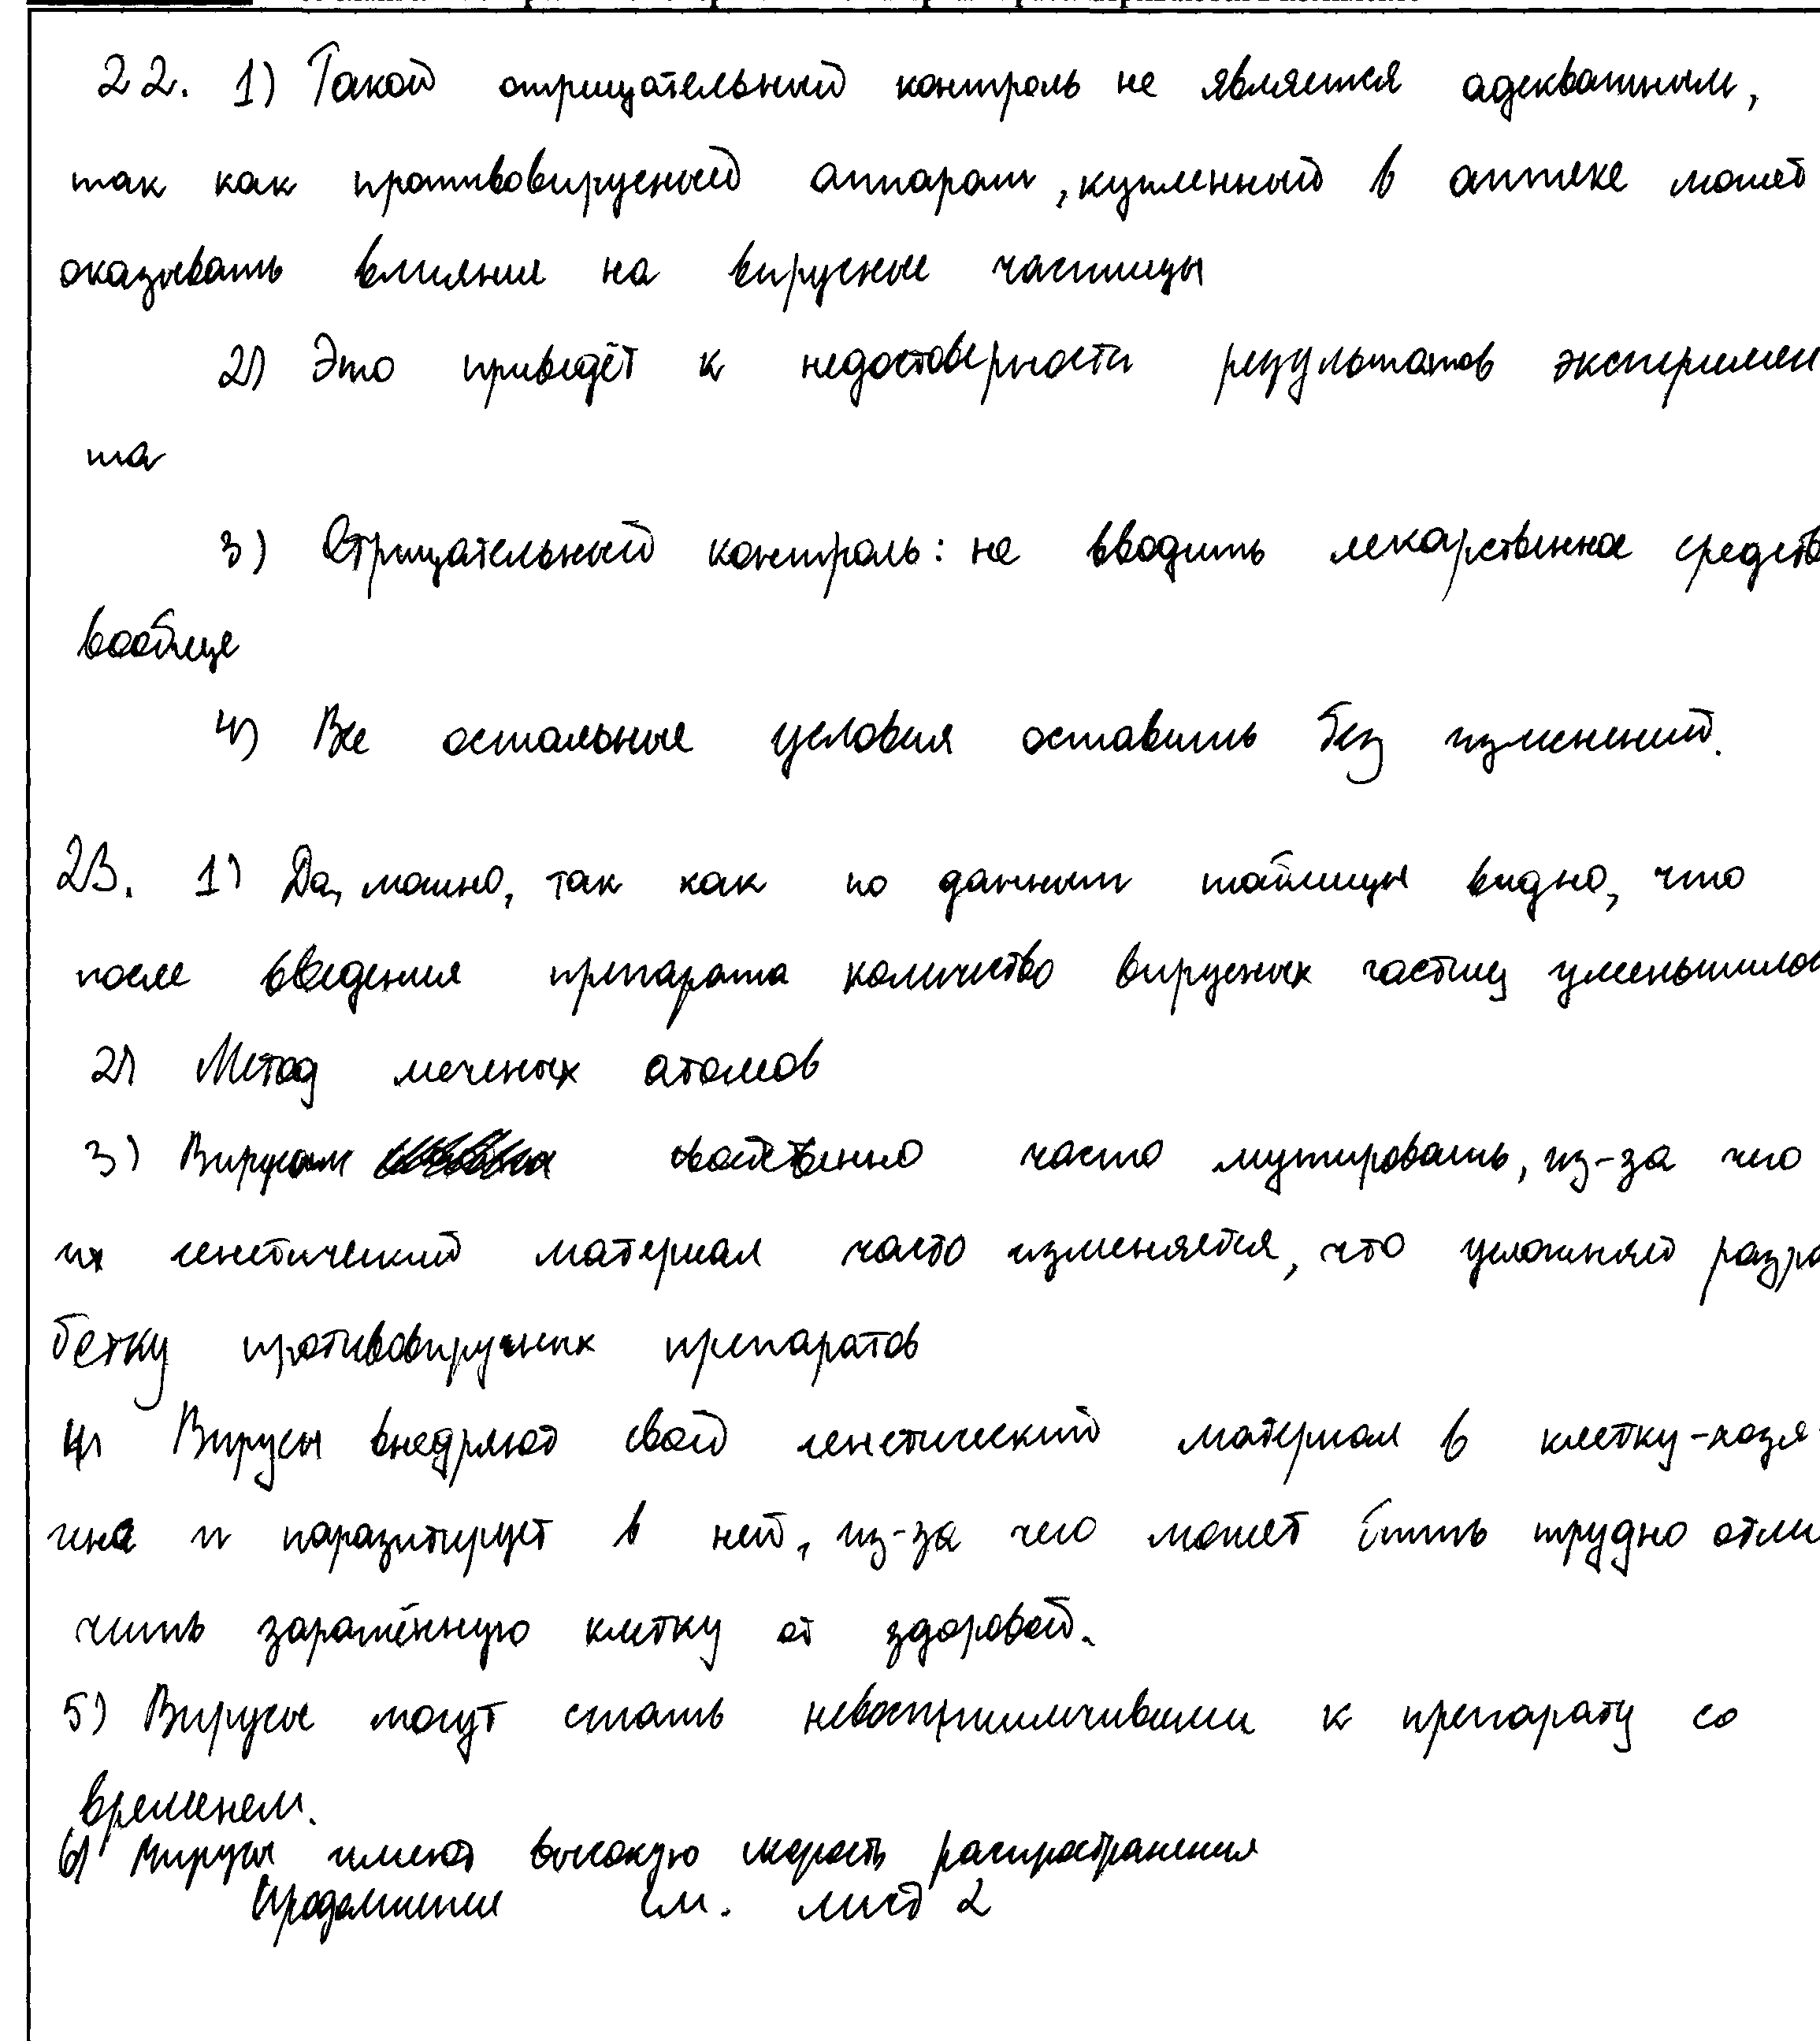 22. 1) Такой отрицательный контроль не является адекватным,
так как противовирусный аппарат, купленный в аптеке может
оказывать влияние на вирусные частицы
2) Это приведёт к недостоверности результатов эксперимен
та
3) Отрицательный контроль: не вводить лекарственное средств
вообще
4) Все остальные условия оставить без изменений.
23. 1) Да, можно, так как по данным таблицы видно, что
после введения препарата количество вирусных частиц уменьшилос
2) Метод меченых атомов
3) Вирусам свойственно часто мутировать, из-за чего
их генетический материал часто изменяется, что усложняет разра
ботку противовирусных препаратов
4) Вирусы внедряют свой генетический материал в клетку-хозя-
ина и паразитирует в ней, из-за чего может быть трудно отли
чить заражённую клетку от здоровой.
5) Вирусы могут стать невосприимчивыми к препарату со
временем.
6) Вирусы имеют высокую скорость распространения
Продолжение см. лист 2